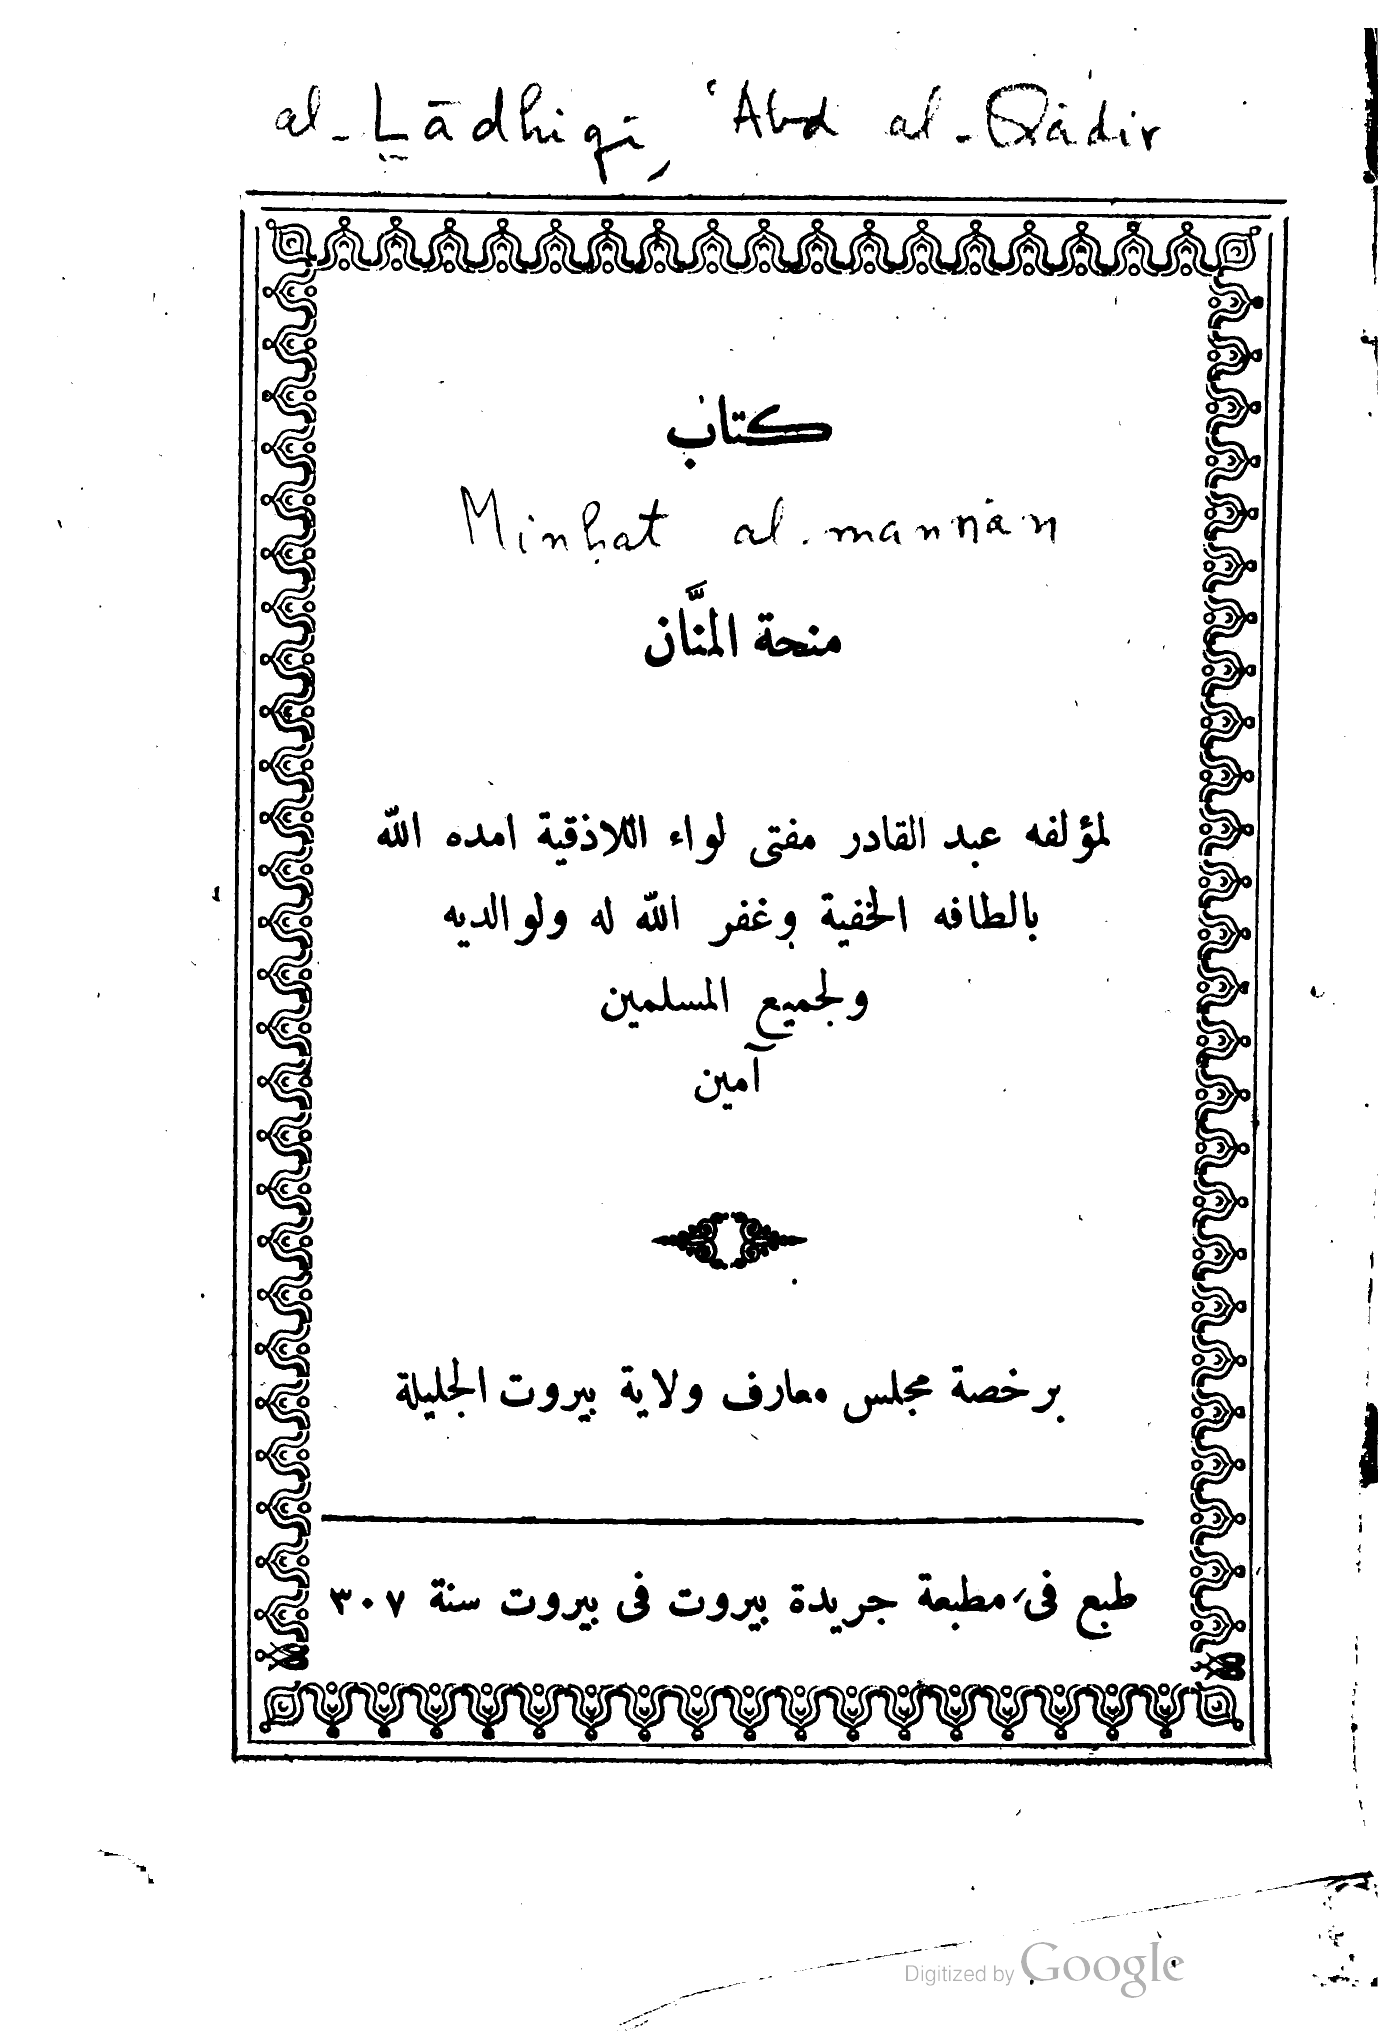 al-Lādhiqī, ʿAbd al-Qādir
كتاب
Minḥat al-mannān
منحة المنَّان
لمؤلفه عبد القادر مفتى لواء اللاذقية امده الله
بالطافه الخفية وغفر الله له ولوالديه
ولجميع المسلمين
آمين
برخصة مجلس معارف ولاية بيروت الجليلة
طبع فى مطبعة جريدة بيروت فى بيروت سنة ٣٠٧
Digitized by Google